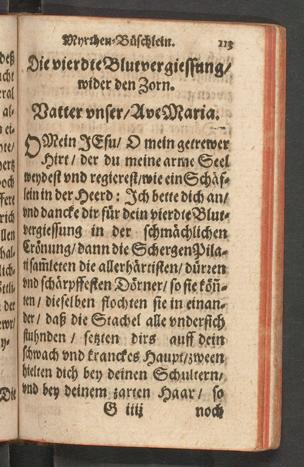 Myrrhen-Büschlein. 113
Die vierdte Blutvergiessung/
wider den Zorn.
Vatter vnser/ Ave Maria.
O Mein JEsu/ O mein getrewer
Hirt/ der du meine arme Seel
weydest vnd regierest/ wie ein Schäf-
lein in der Heerd: Ich bette dich an/
vnd dancke dir für dein vierdte Blut-
vergiessung in der schmächlichen
Crönung/ dann die Schergen Pila-
ti sam̃leten die allerhärtisten/ dürzen
vnd schärpffesten Dörner/ so sie köñ-
ten/ dieselben flochten sie in einan-
der/ daß die Stachel alle vndersich
stuhnden/ setzten dirs auff dein
schwach vnd kranckes Haupt/ zween
hielten dich bey deinen Schultern/
vnd bey deinem zarten Haar/ so
G iiij noch